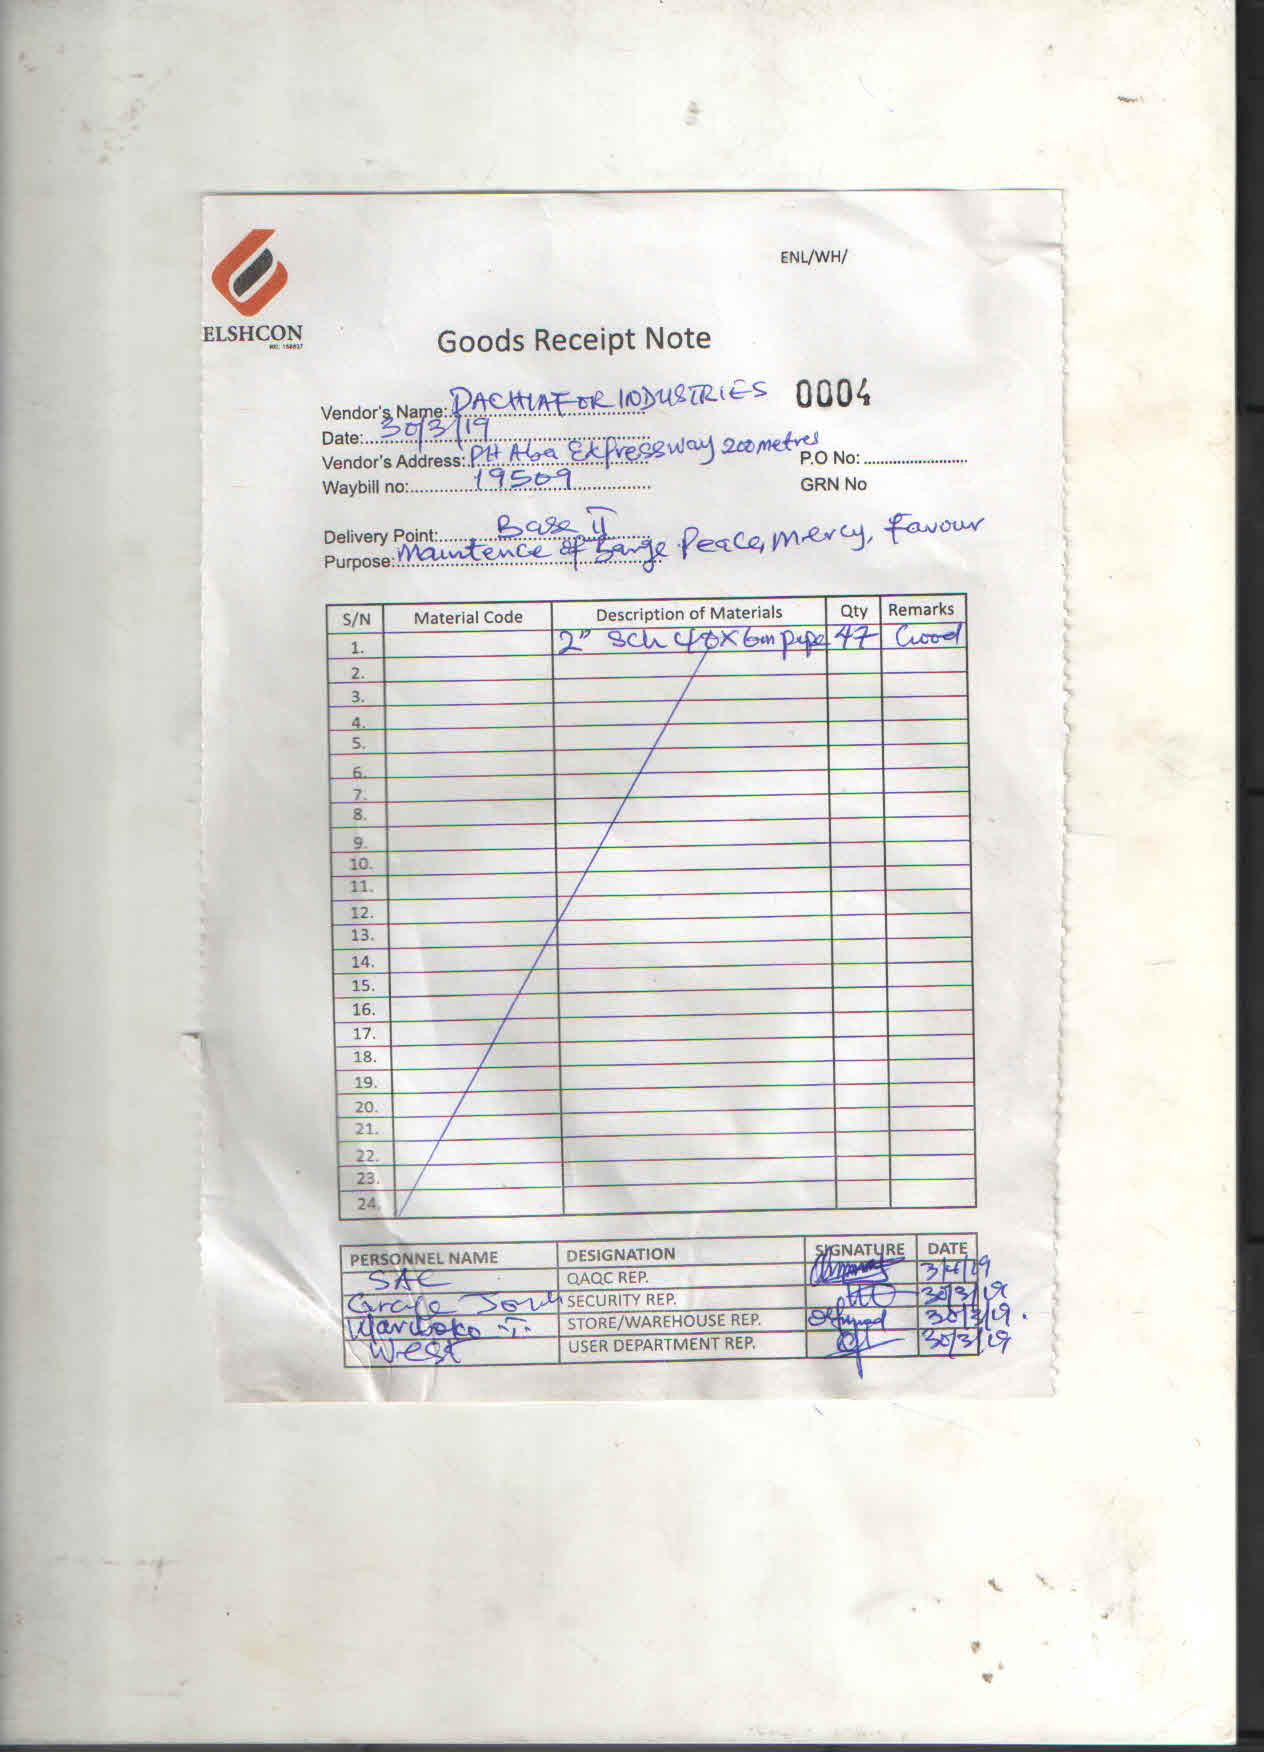 ENL/WH/
ELSHCON
Goods Receipt Note
Vendor's Name: DACHIAFOR INDUSTRIES 0004
Date: 30/3/19
Vendor's Address: PH Aba Expressway 200metres
P.O No:
Waybill no: 19509
GRN No
Delivery Point: Base II
Purpose: Maintence of Barge Peace, Mercy, Favour
S/N Material Code Description of Materials Qty Remarks
1. 2" Sch 40 X 6m pipe 47 Good
2.
3.
4.
5.
6.
7.
8.
9.
10.
11.
12.
13.
14.
15.
16.
17.
18.
19.
20.
21.
22.
23.
24.
PERSONNEL NAME DESIGNATION SIGNATURE DATE
QAQC REP. 3/4/19
Grace SECURITY REP. 30/3/19
STORE/WAREHOUSE REP. 30/3/19.
West USER DEPARTMENT REP. 30/3/19